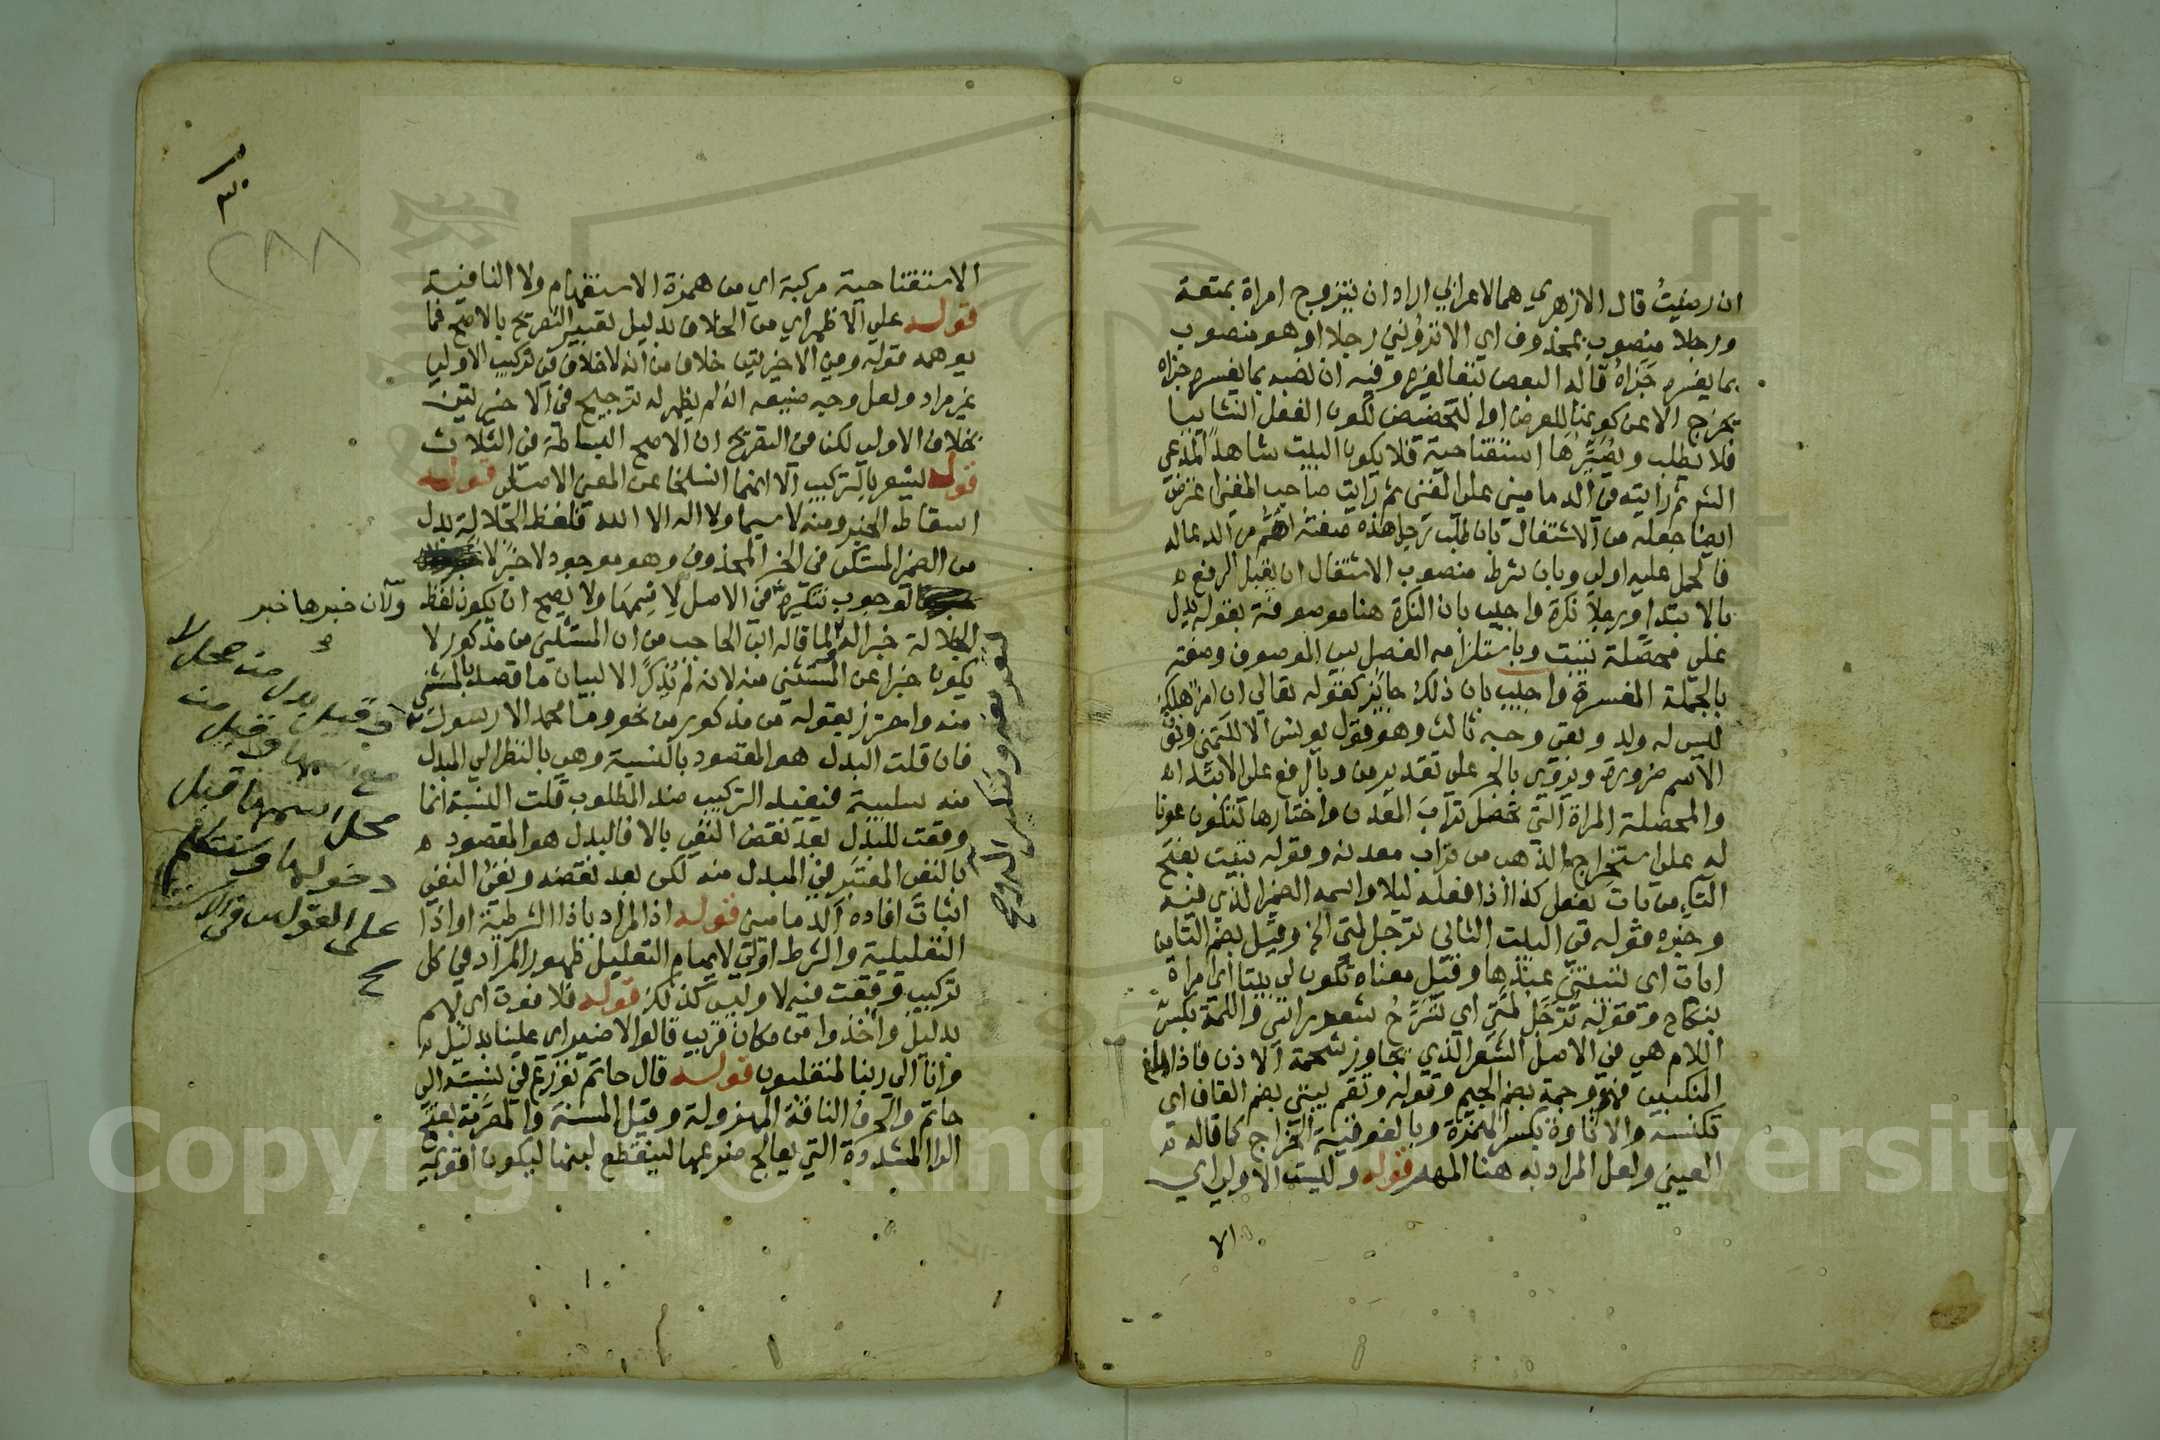 ان رضيتُ قال الازهري هما لاعرابي اراد ان يتزوج امراة بمتعة
ورجلا منصوب بمحذوف اي الا تزوّنني رجلا او هو منصوب
بما يفسره جَزَاهُ قاله البعض تبعا لغيره وفيه ان نصبه بما يفسره جزاه
يخرج الا عن كونها للعرض او التحضيض لكون الفعل انشائيا
فلا يطلب ويُصَيِّرُهَا استفتاحية فلا يكون البيت شاهدا لمدعى
الش ثم رايته في الدماميني على المغني ثم رايت صاحب المغني اعترض
ايضا جعله من الاشتغال بان طلب رجل هذه صفته اهم من الدعا له
فالحمل عليه اولى وبان شرط منصوب الاشتغال ان يقبل الرفع
بالابتدا ورجلا نكرة واجيب بان النكرة هنا موصوفة بقوله يدل
على محصلة تبيت وباستلزامه الفصل بين الموصوف وصفته
بالجملة المفسرة واجيب بان ذلك جايز كقوله تعالى ان امرؤ هلك
ليس له ولد وبقي وجه ثالث وهو قول يونس الا للتمني ونون
الاسم ضرورة ويروى بالجر على تقدير من وبالرفع على الابتداء
والمحصلة المراة التي تحصل تراب المعدن واختارها لتكون عونا
له على استخراج الذهب من تراب معدنه وقوله تبيت بفتح
التاء من بات يفعل كذا اذا فعله ليلا واسمه الضمير الذي فيه
وخبره قوله في البيت الثاني ترجل لمتي الخ وقيل بضم التا من
ابات اي تبيتني عندها وقيل معناه تكون لي بيتا اي امراة
بنكاح وقوله تُرَجِّلُ لمتي اي تُسَرِّحُ شعر راسي واللمة بكسر
اللام هي في الاصل الشعر الذي يجاوز شحمة الاذن فاذا بلغ
المنكبين فهو جمة بضم الجيم وقوله وتقم بيتي بضم القاف اي
تكنسه والاتاوة بكسر الهمزة وبالفوقية الخراج كما قاله
العيني ولعل المراد به هنا المهر قوله وليست الاولى اي
الا
الاستفتاحية مركبة اي من همزة الاستفهام ولا النافية
قوله على الاظهر اي من الخلاف بدليل تعبير التصريح بالاصح فما
يوهمه قوله وفي الاخيرتين خلاف من انه لا خلاف في تركيب الاولى
غير مراد ولعل وجه صنيعه انه لم يظهر له ترجيح في الاخيرتين
بخلاف الاولى لكن في التصريح ان الاصح البساطة في الثلاث
قوله ليشعر بالتركيب الا انهما انسلخا عن المعنى الاصلي قوله
اسقاط الخبر ومنه لا سيما ولا اله الا الله فلفظ الجلالة بدل
من الضمير المستكن في الخبر المحذوف وهو موجود لا خبر لا
لوجوب تنكيره في الاصل لاسمها ولا يصح ان يكون لفظ
الجلالة خبرا له لما قاله ابن الحاجب من ان المستثنى من مذكور لا
يكون خبرا عن المستثنى منه لانه لم يُذكر الا لبيان ما قصد بالمستثنى
منه واحترز بقوله من مذكور من نحو وما محمد الا رسول
فان قلت البدل هو المقصود بالنسبة وهي بالنظر الى المبدل
منه سلبية فيفيد التركيب ضد المطلوب قلت النسبة انما
وقعت للبدل بعد نقض النفي بالا فالبدل هو المقصود
بالنفي المعتبر في المبدل منه لكن بعد نقضه ونفي النفي
اثبات افاده الدماميني قوله اذا المراد باذا الشرطية او اذا
التعليلية والشرط اولى لايهام التعليل ظهور المراد في كل
تركيب وقعت فيه لا وليس كذلك قوله فلا فوت اي لهم
بدليل واخذوا من مكان قريب قالوا لا ضير اي علينا بدليل
وانا الى ربنا لمنقلبون قوله قال حاتم نوزع في نسبته الى
حاتم والحرف الناقة المهزولة وقيل المسنة والمصرمة بفتح
الرا المشددة التي يعالج ضرعها لينقطع لبنها ليكون اقوى
ولان خبرها خبر
وقيل بدل من محل لا
مع اسمها وقيل من
محل اسمها قبل
دخولها وسنتكلم
على القولين في الاستثنا
٣٠
٢٨٨
Copyright © King Saud University